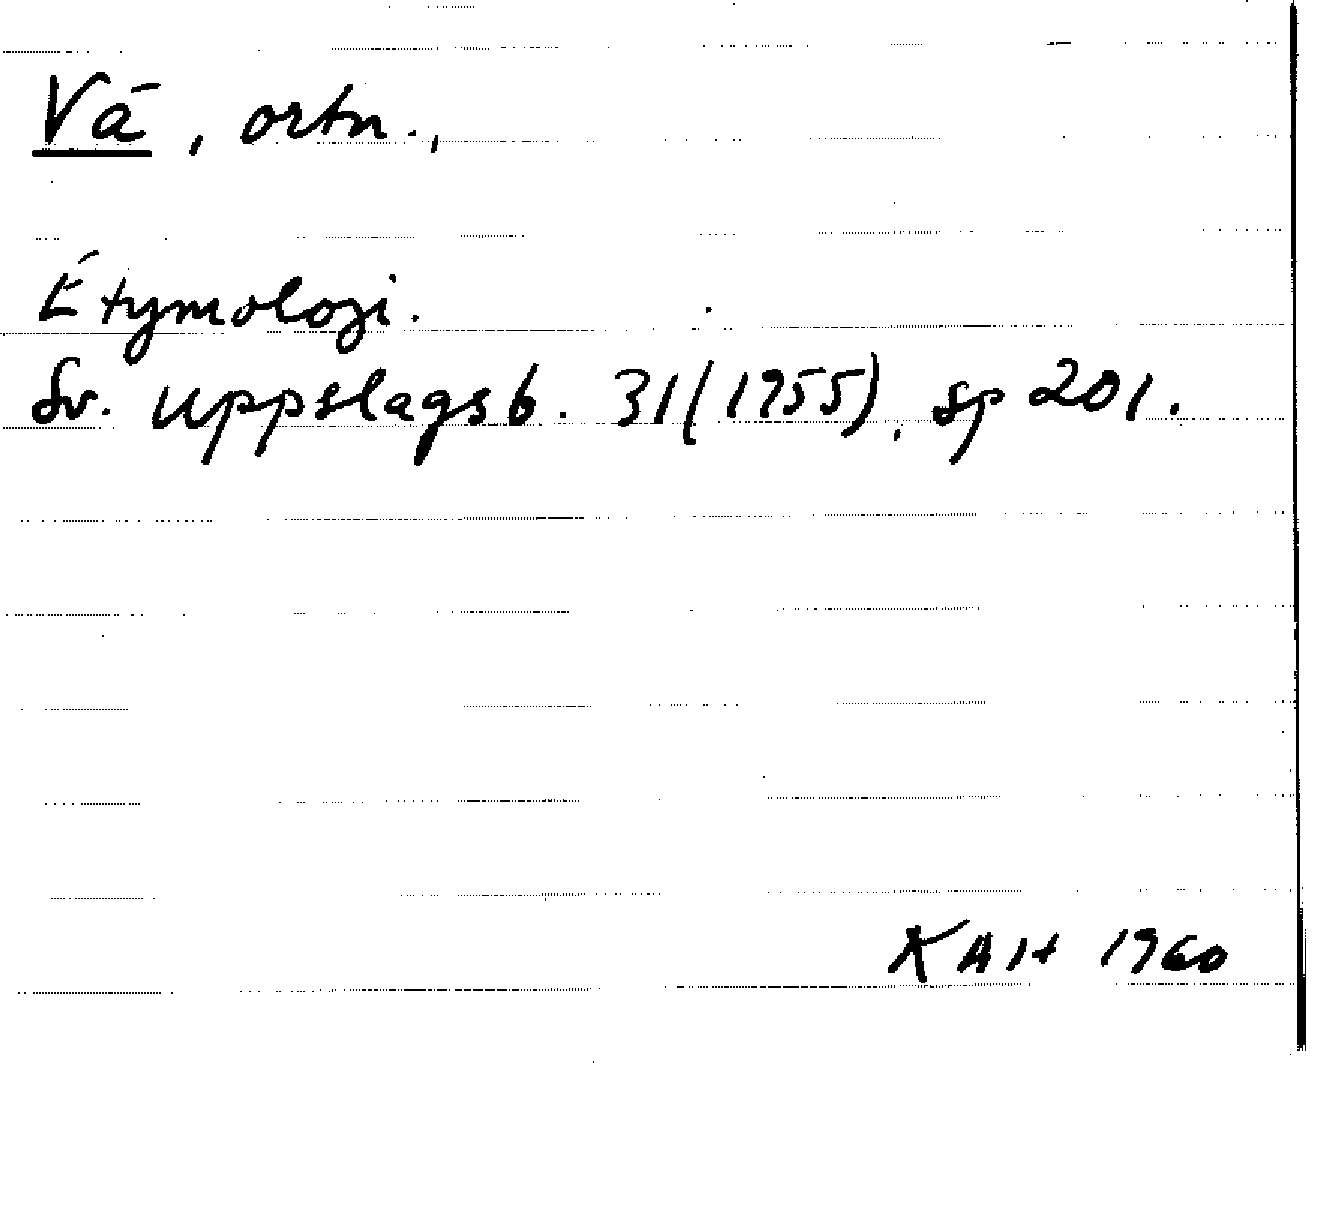 Vä, ortn.,
Etymologi.
Sv. uppslagsb. 31(1955), sp 201.
KAH 1960